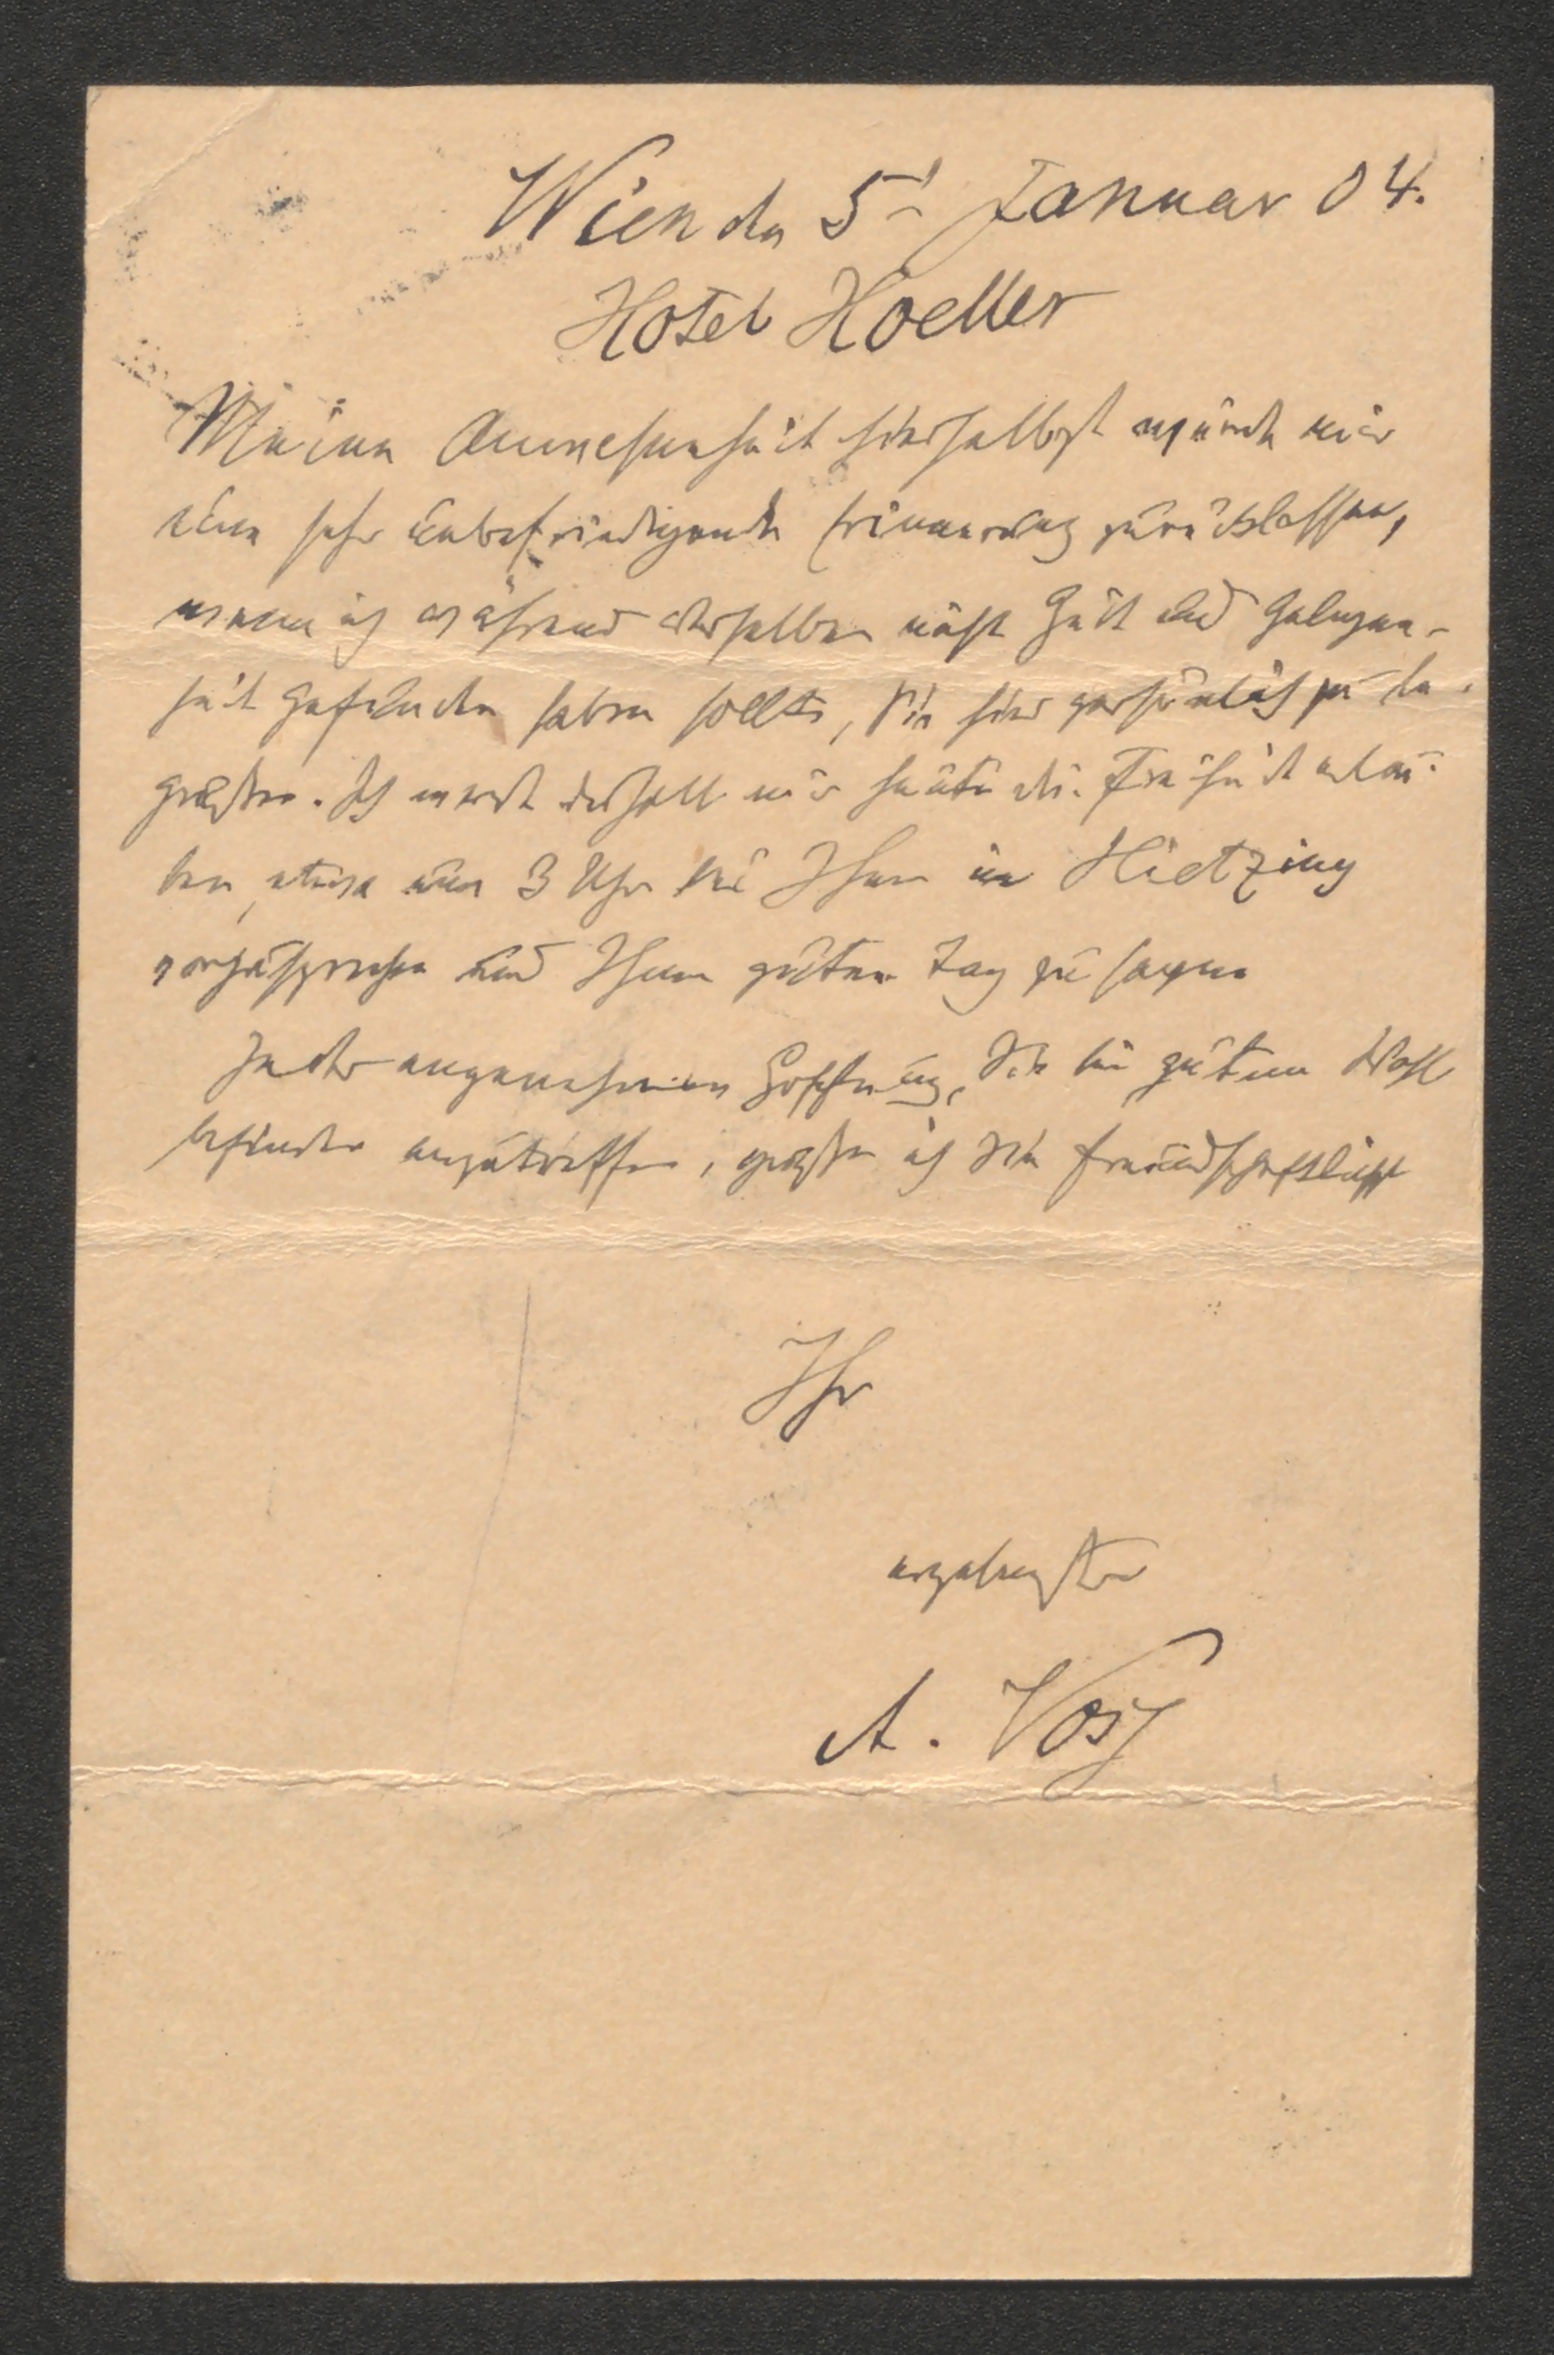 Wien den 5t Januar 04.
Hotel Hoeller
Meine Anwesenheit hierselbst würde mir
eine sehr unbefriedigende Erinnerung zurücklassen,
wenn ich während derselben nicht Zeit und Gelegen-
heit gefunden haben sollte, Sie hier persönlich zu be-
grüßen. Ich werde deshalb mir heute die Freiheit erlau-
ben, etwa um 3 Uhr bei Ihnen in Hietzing
vorzusprechen und Ihnen guten Tag zu sagen
In der angenehmen Hoffnung, Sie bei gutem Wohl
befinden anzutreffen, grüße ich Sie freundschaftlichst
Ihr
ergebenster
A.